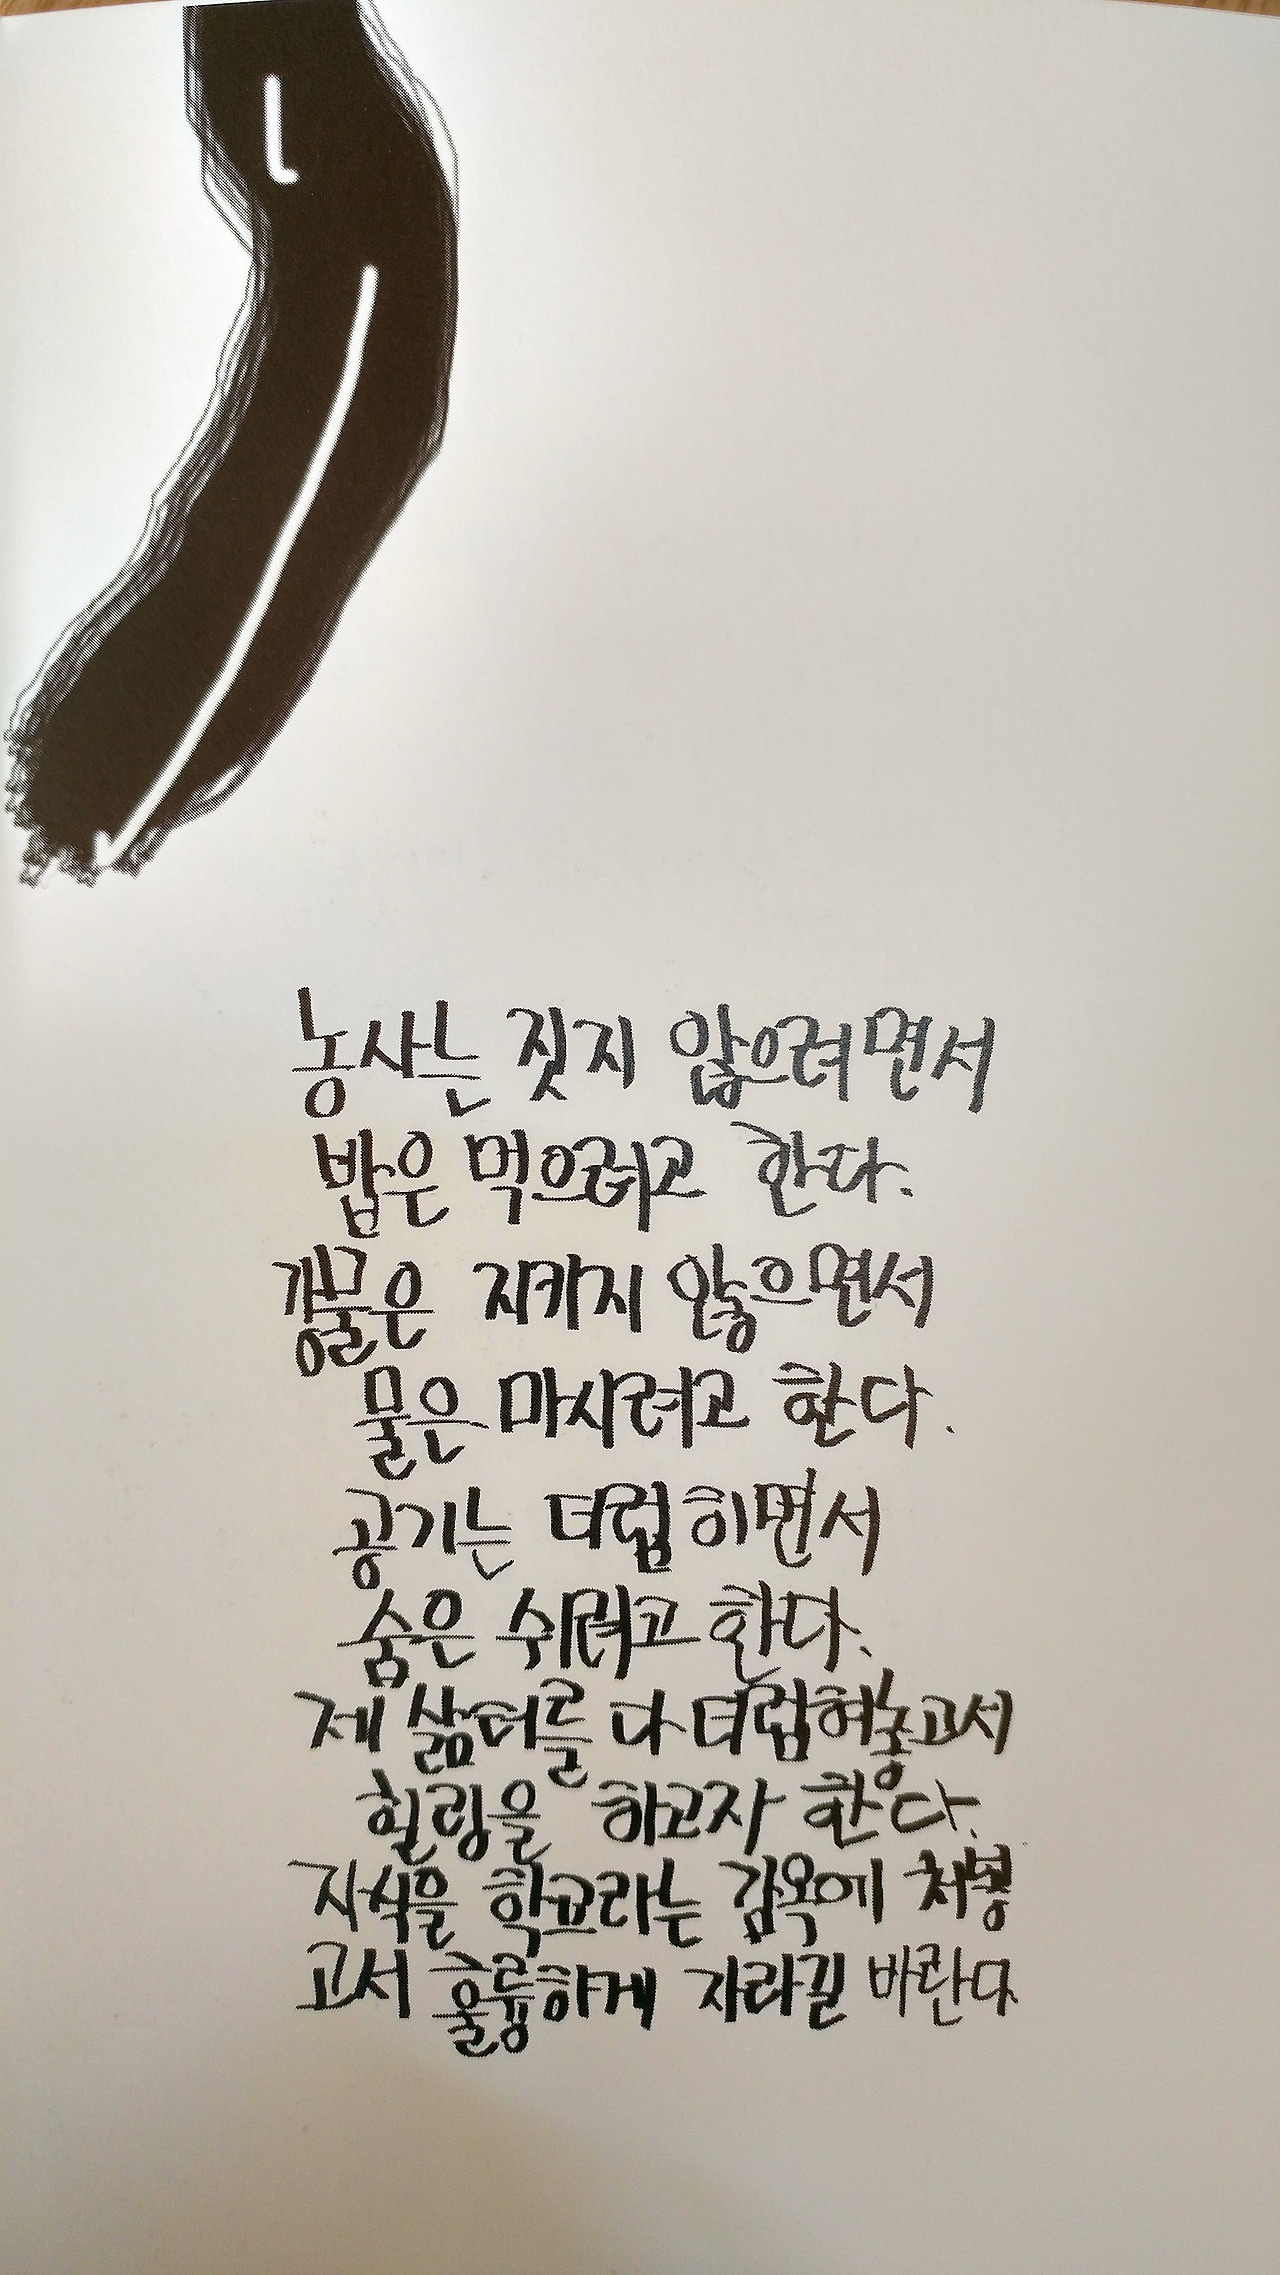 농사는 짓지 않으려면서
밥은 먹으려고 한다.
강물은 지키지 않으면서
물은 마시려고 한다.
공기는 더럽히면서
숨은 쉬려고 한다.
제 삶터를 다 더럽혀놓고서
힐링을 하고자 한다.
자식을 학교라는 감옥에 처넣
고서 훌륭하게 자라길 바란다